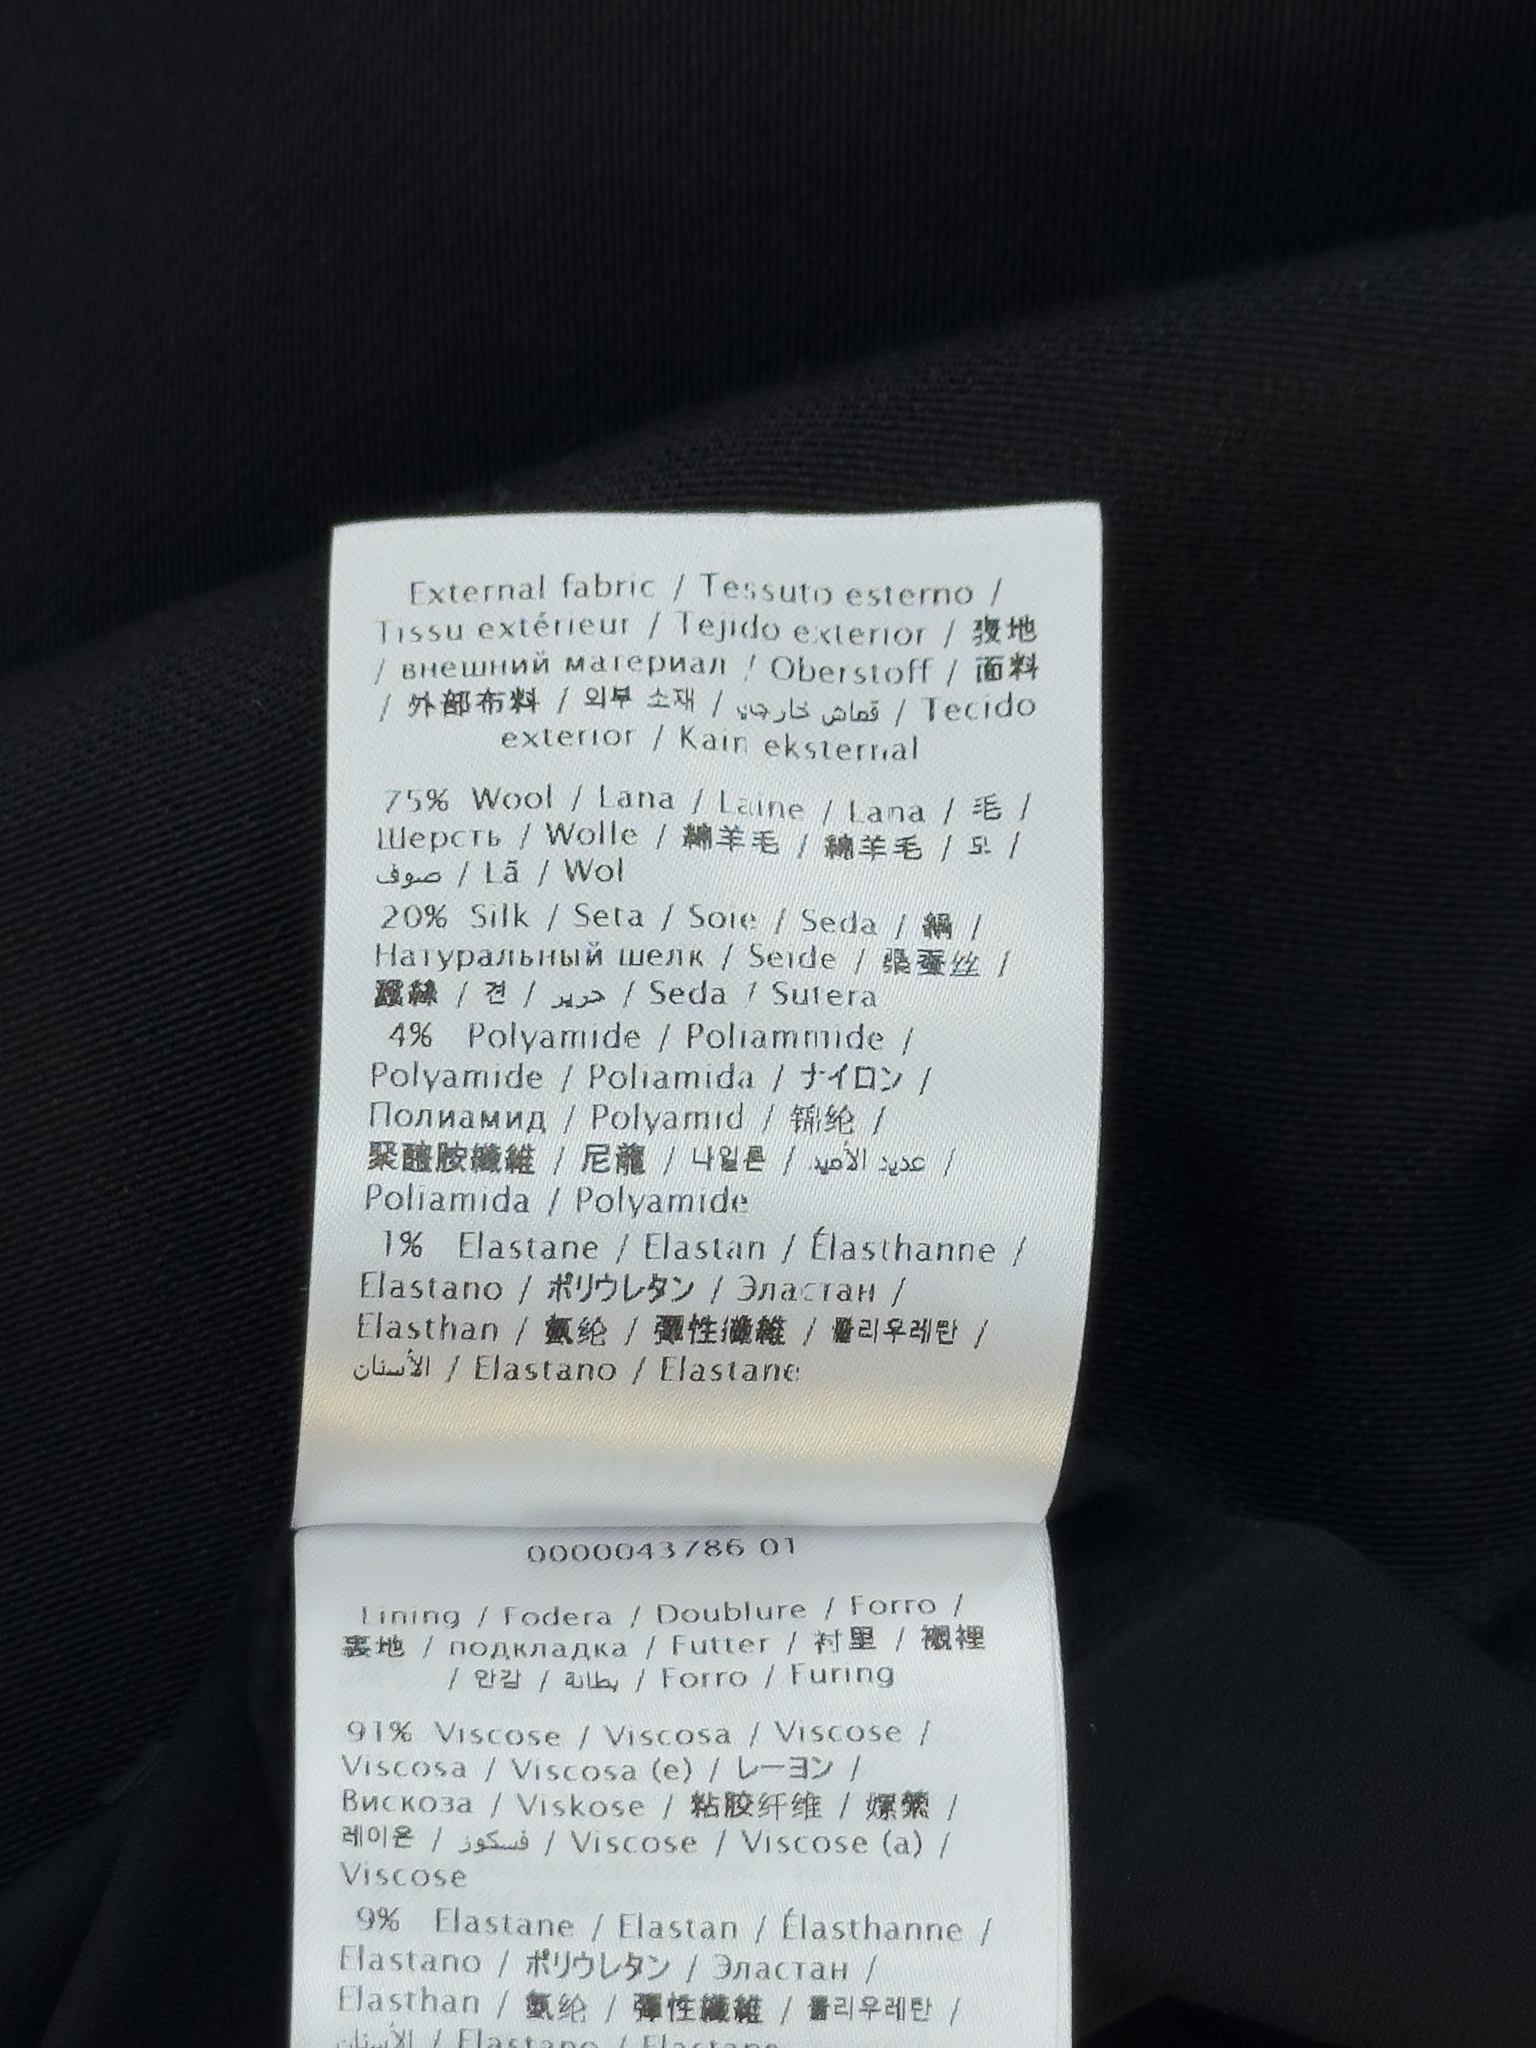 External fabric / Tessuto esterno /
Tissu extérieur / Tejido exterior / 表地
/ внешний материал / Oberstoff / 面料
/ 外部布料 / 외부 소재 / قماش خارجي / Tecido
exterior / Kain eksternal
75% Wool / Lana / Laine / Lana / 毛 /
Шерсть / Wolle / 綿羊毛 / 綿羊毛 / 모 /
صوف / Lã / Wol
20% Silk / Seta / Soie / Seda / 絹 /
Натуральный шелк / Seide / 桑蚕丝 /
蠶絲 / 견 / حرير / Seda / Sutera
4% Polyamide / Poliammide /
Polyamide / Poliamida / ナイロン /
Полиамид / Polyamid / 锦纶 /
聚醯胺纖維 / 尼龍 / 나일론 / عديد الأميد /
Poliamida / Polyamide
1% Elastane / Elastan / Élasthanne /
Elastano / ポリウレタン / Эластан /
Elasthan / 氨纶 / 彈性纖維 / 폴리우레탄 /
الأستان / Elastano / Elastane
0000043786 01
Lining / Fodera / Doublure / Forro /
裏地 / подкладка / Futter / 衬里 / 襯裡
/ 안감 / بطانة / Forro / Furing
91% Viscose / Viscosa / Viscose /
Viscosa / Viscosa (e) / レーヨン /
Вискоза / Viskose / 粘胶纤维 / 嫘縈 /
레이온 / فسكوز / Viscose / Viscose (a) /
Viscose
9% Elastane / Elastan / Élasthanne /
Elastano / ポリウレタン / Эластан /
Elasthan / 氨纶 / 彈性纖維 / 폴리우레탄 /
الأستان / Elastano / Elastane